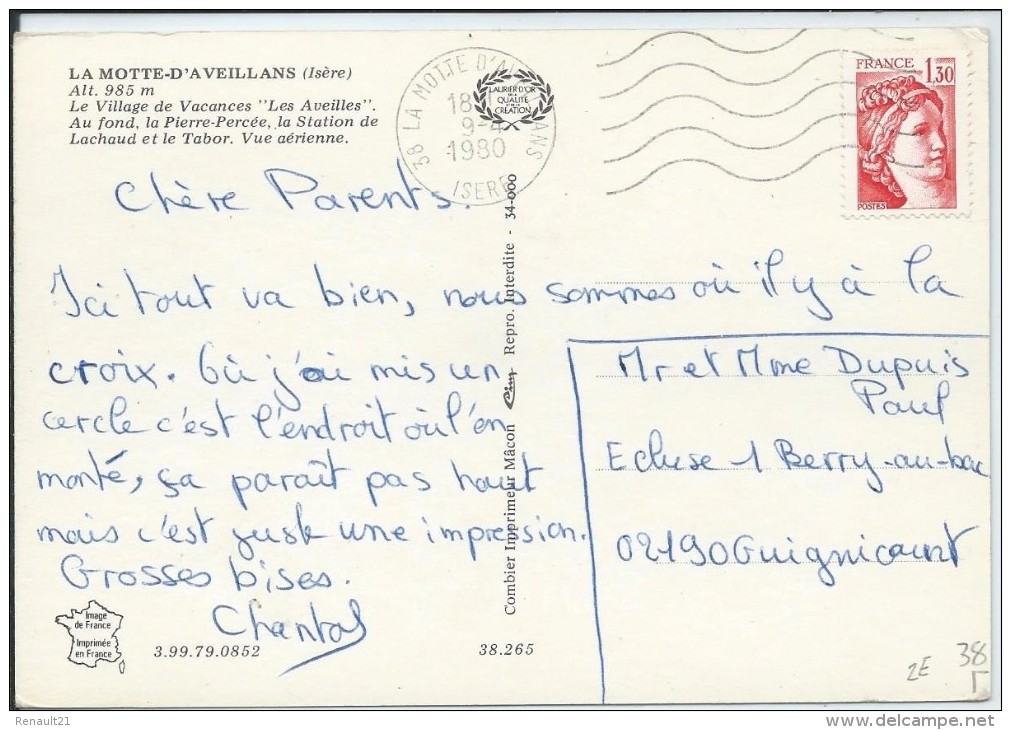 LA MOTTE-D'AVEILLANS (Isère)
Alt. 985 m
Le Village de Vacances "Les Aveilles".
Au fond, la Pierre-Percée, la Station de
Lachaud et le Tabor. Vue aérienne.
38 LA MOTTE D'AVEILLANS
18H
9-4
1980
ISERE
LAURIER D'OR
DE LA
QUALITÉ
ET DE LA
CRÉATION
FRANCE 1,30
POSTES
Chère Parents.
Ici tout va bien, nous sommes où il y à la
croix. Où j'ai mis un
cercle c'est l'endroit où l'en
monté, ça paraît pas haut
mais c'est juste une impression.
Grosses bises.
Chantal
Mr et Mme Dupuis
Paul
Ecluse 1 Berry-au-bac
02190 Guignicourt
Combier Imprimeur Mâcon Cim Repro. Interdite - 34-000
Image
de France
Imprimée
en France
3.99.79.0852
38.265
2E
38
Renault21
www.delcampe.net